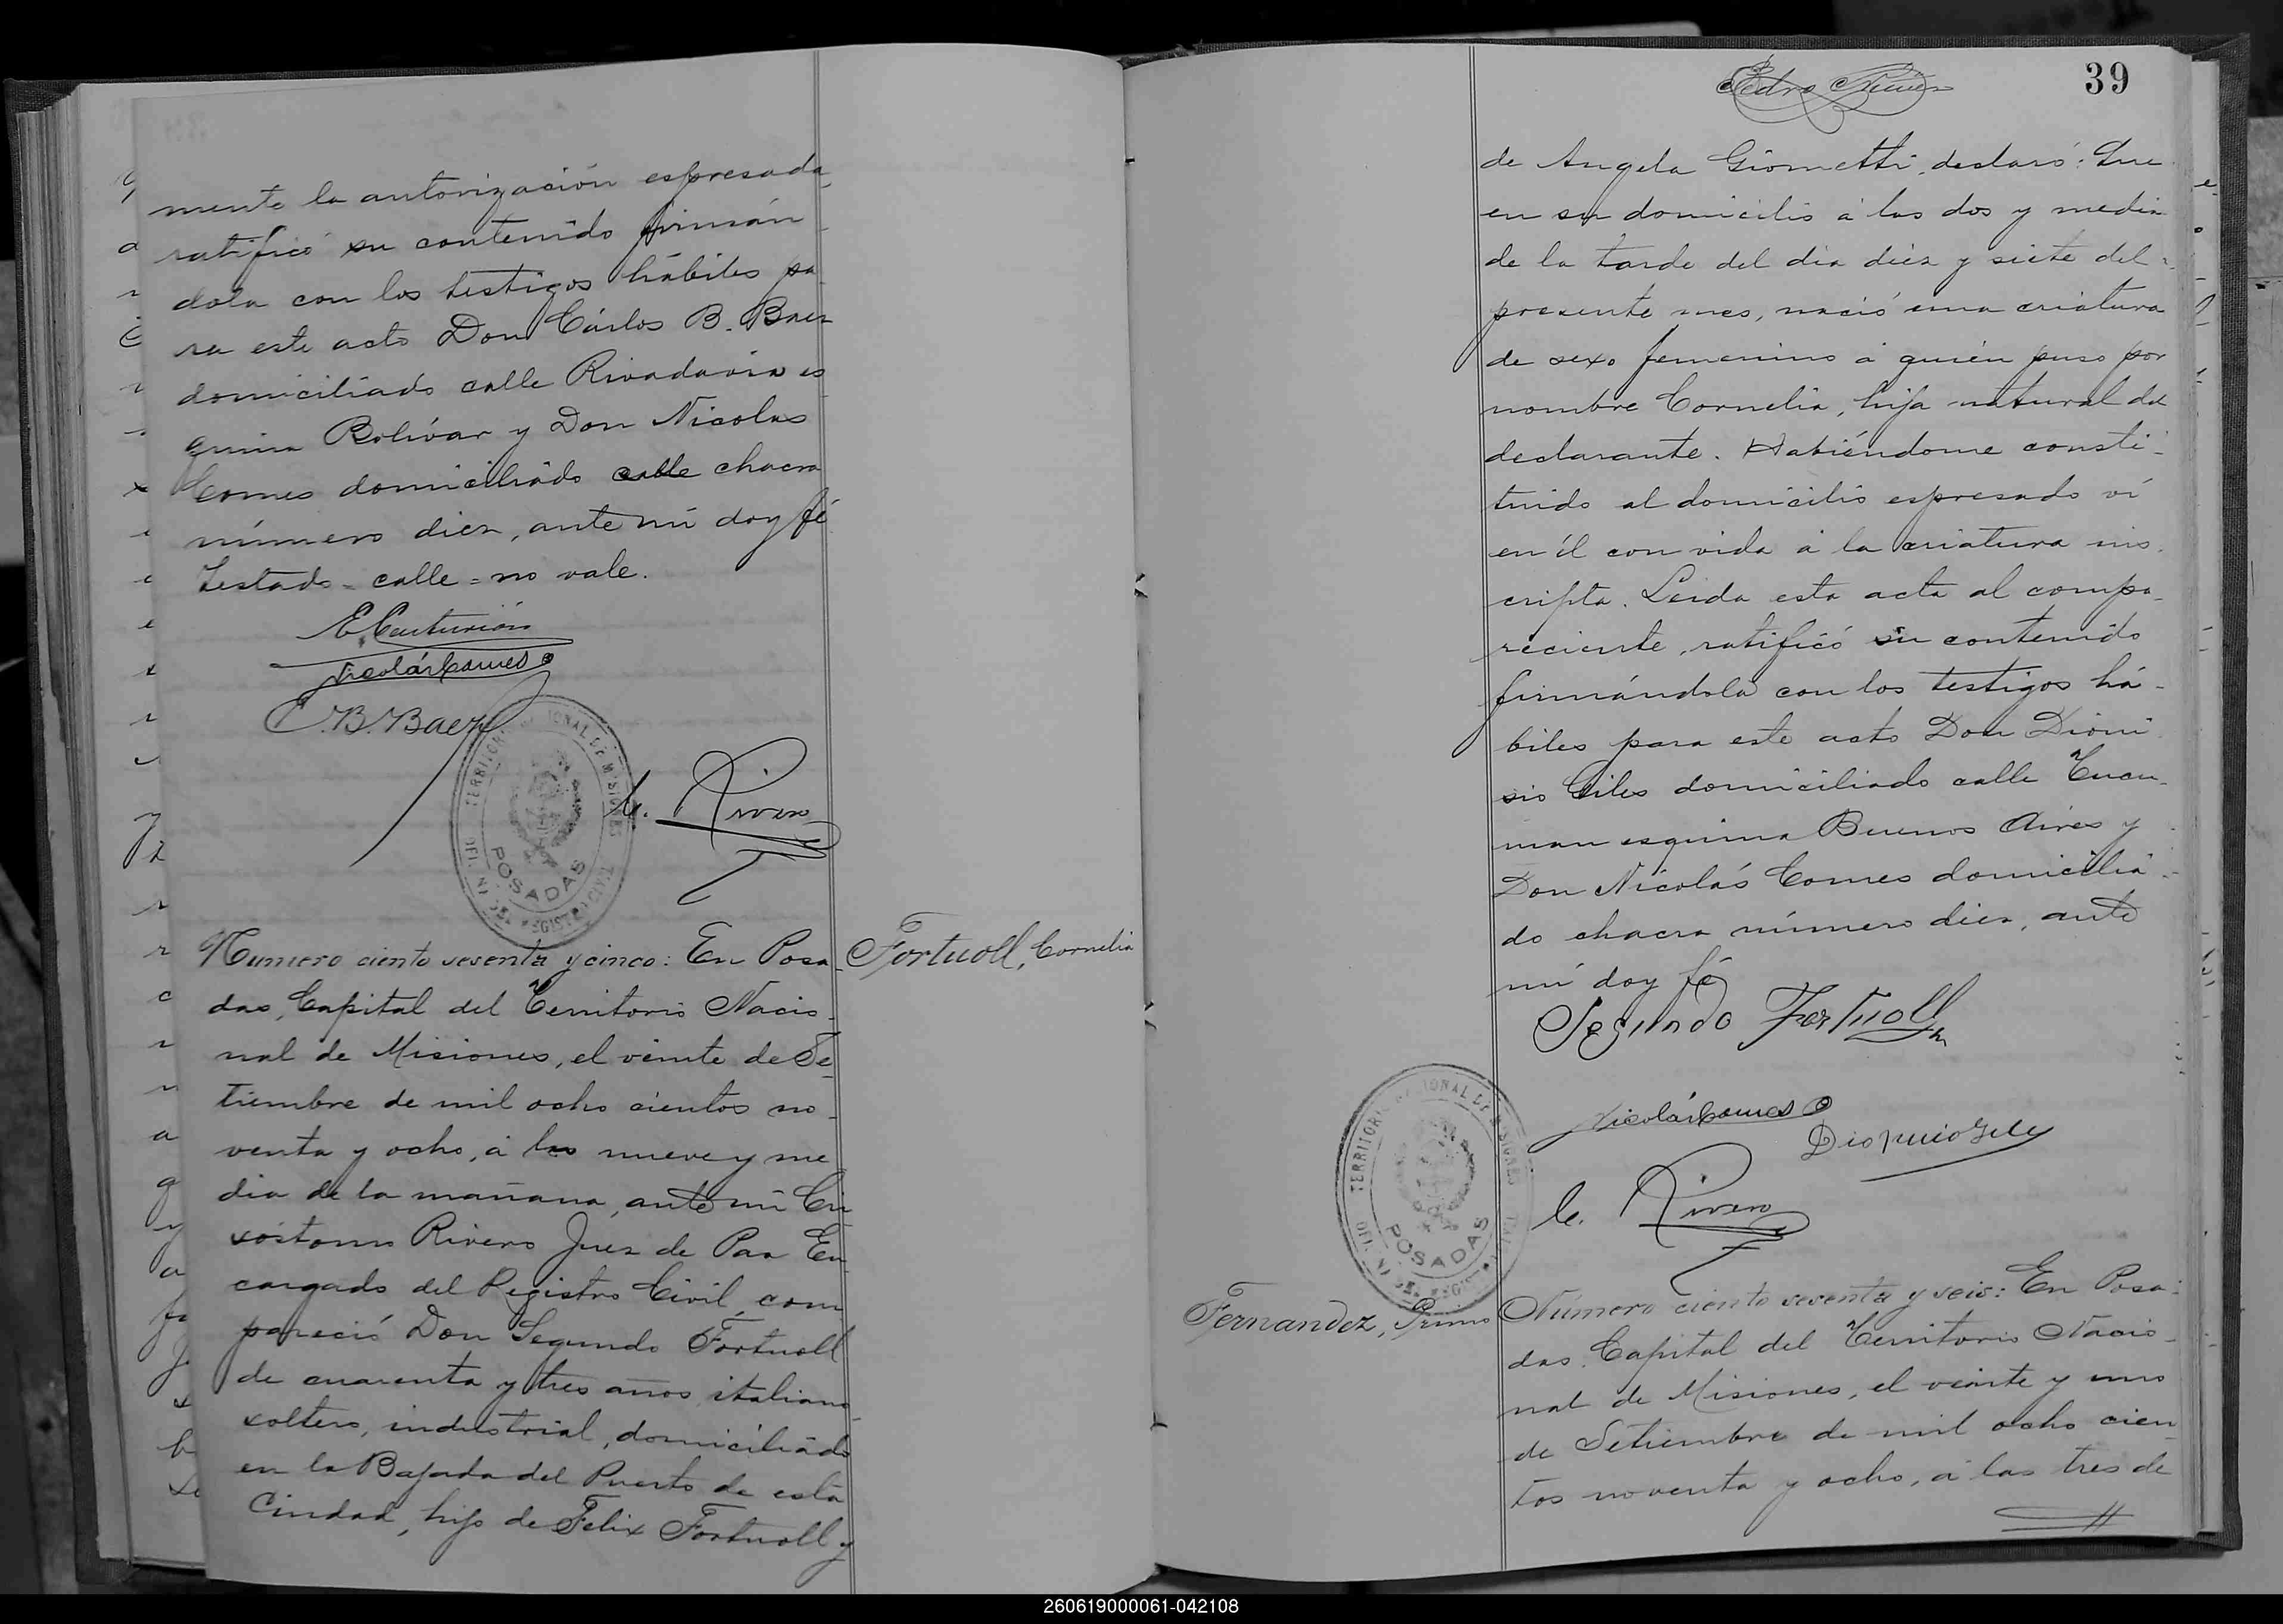 mente la autorización espresada,
ratificó su contenido firmán
dola con los testigos hábiles pa
ra este acto Don Cárlos B. Baez
domiciliado calle Rivadavia es
quina Bolívar y Don Nicolas
Comes domiciliado calle chacra
número diez, ante mí doy fé
Testado = calle = no vale.
E. Centurión
Nicolás Comes
C. B. Baez
TERRITORIO NACIONAL DE MISIONES
POSADAS
C. Rivero
Número ciento sesenta y cinco: En Posa
Fortuoll, Cornelia
das, Capital del Territorio Nacio
nal de Misiones, el veinte de Se
tiembre de mil ocho cientos no
venta y ocho, á las nueve y me
dia de la mañana, ante mí Cri
sóstomo Rivero Juez de Paz En
cargado del Registro Civil, com
pareció Don Segundo Fortuoll
de cuarenta y tres años, italiano
soltero, industrial, domiciliado
en la Bajada del Puerto de esta
Ciudad, hijo de Felix Fortuoll y
39
de Angela Giometti, declaró: Que
en su domicilio á las dos y media
de la tarde del dia diez y siete del
presente mes, nació una criatura
de sexo femenino á quién puso por
nombre Cornelia, hija natural del
declarante. Habiéndome consti-
tuido al domicilio espresado ví
en él con vida á la criatura ins
cripta. Leida esta acta al compa-
reciente, ratificó su contenido
firmándola con los testigos há-
biles para este acto Don Dioni
sio Giles domiciliado calle Tucu-
man esquina Buenos Aires y
Don Nicolás Comes domicilia-
do chacra número diez, ante
mí doy fé
Segundo Fortuoll
Nicolás Comes
Dionicio Gile
TERRITORIO NACIONAL DE MISIONES
POSADAS
C. Rivero
Fernandez, Primo
Número ciento sesenta y seis: En Posa-
das, Capital del Territorio Nacio-
nal de Misiones, el veinte y uno
de Setiembre de mil ocho cien
tos noventa y ocho, á las tres de
260619000061-042108